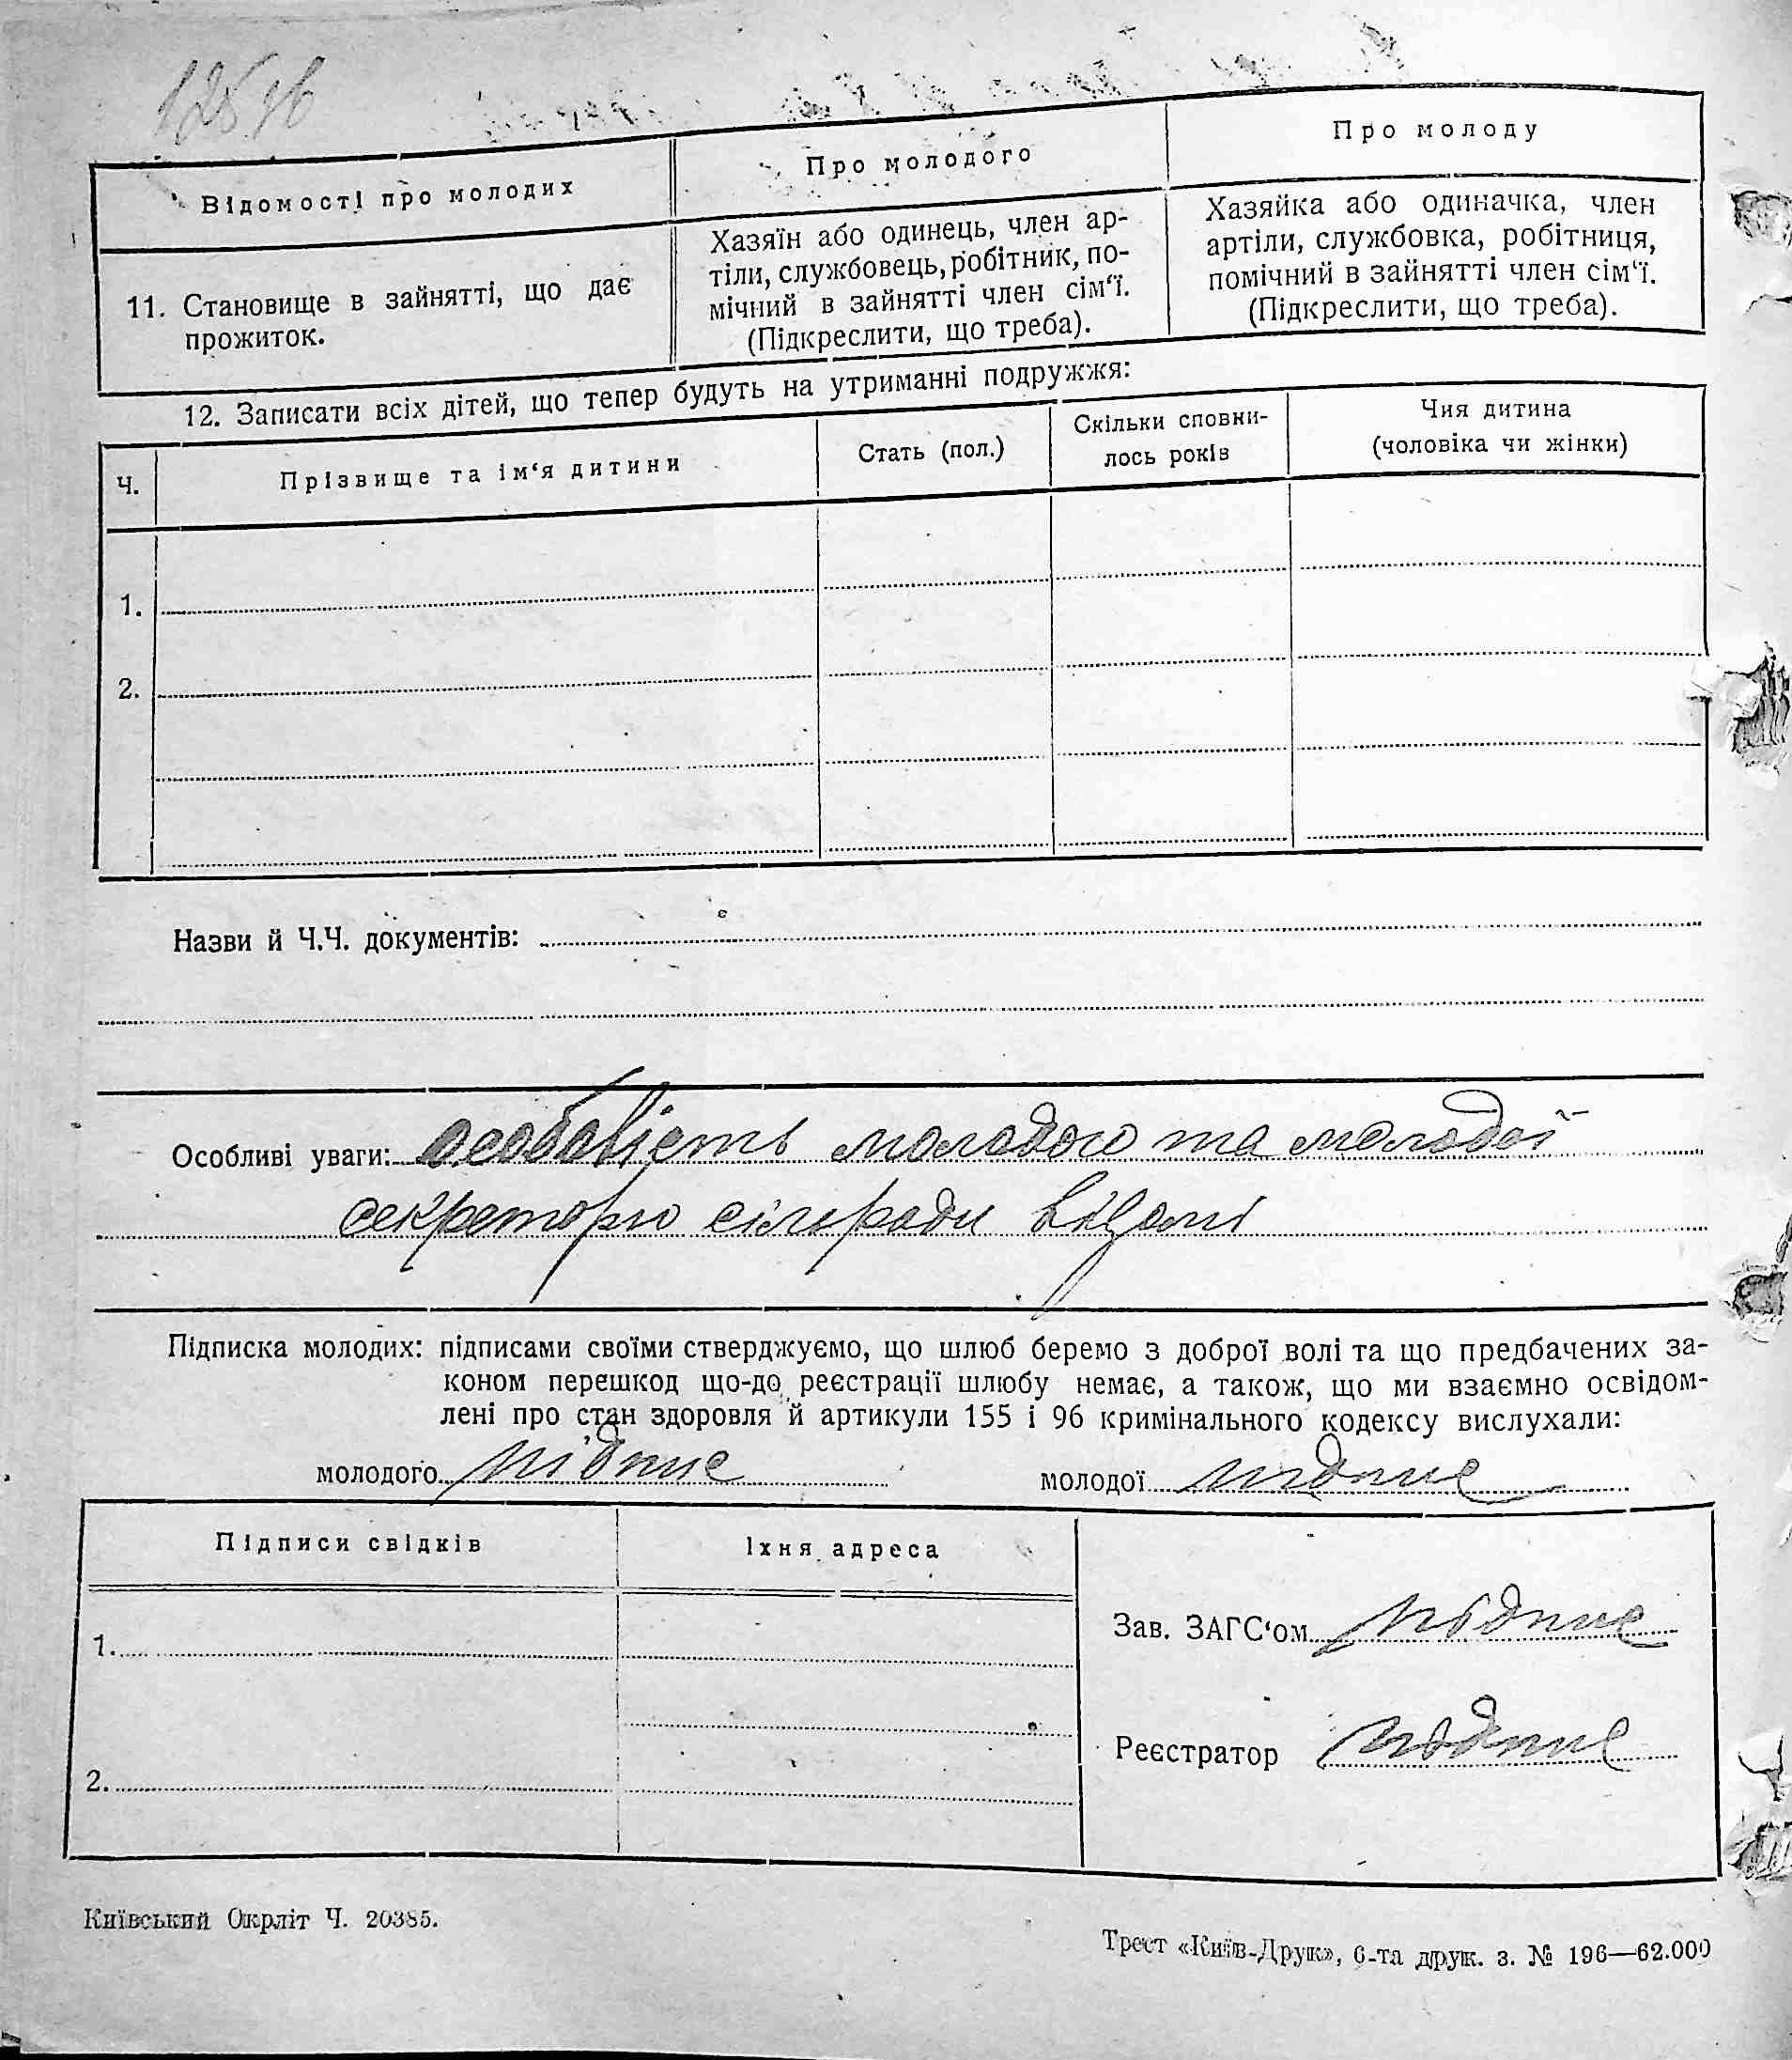 Відомості про молодих
Про молодого
Про молоду
11. Становище в зайнятті, що дає
прожиток.
Хазяїн або одинець, член ар-
тіли, службовець, робітник, по-
мічний в зайнятті член сім‘ї.
(Підкреслити, що треба).
Хазяйка або одиначка, член
артіли, службовка, робітниця,
помічний в зайнятті член сім‘ї.
(Підкреслити, що треба).
12. Записати всіх дітей, що тепер будуть на утриманні подружжя:
Ч.
Прізвище та ім‘я дитини
Стать (пол.)
Скільки сповни-
лось років
Чия дитина
(чоловіка чи жінки)
1.
2.
Назви й Ч.Ч. документів:
Особливі уваги: особовість молодого та молодої
секретарю сільради відомі
Підписка молодих: підписами своїми стверджуємо, що шлюб беремо з доброї волі та що предбачених за-
коном перешкод що-до реєстрації шлюбу немає, а також, що ми взаємно освідом-
лені про стан здоровля й артикули 155 і 96 кримінального кодексу вислухали:
молодого підпис молодої підпис
Підписи свідків
Їхня адреса
1.
2.
Зав. ЗАГС‘ом підпис
Реєстратор підпис
Київський Окрліт Ч. 20385.
Трест «Київ-Друк», 6-та друк. з. № 196—62.000